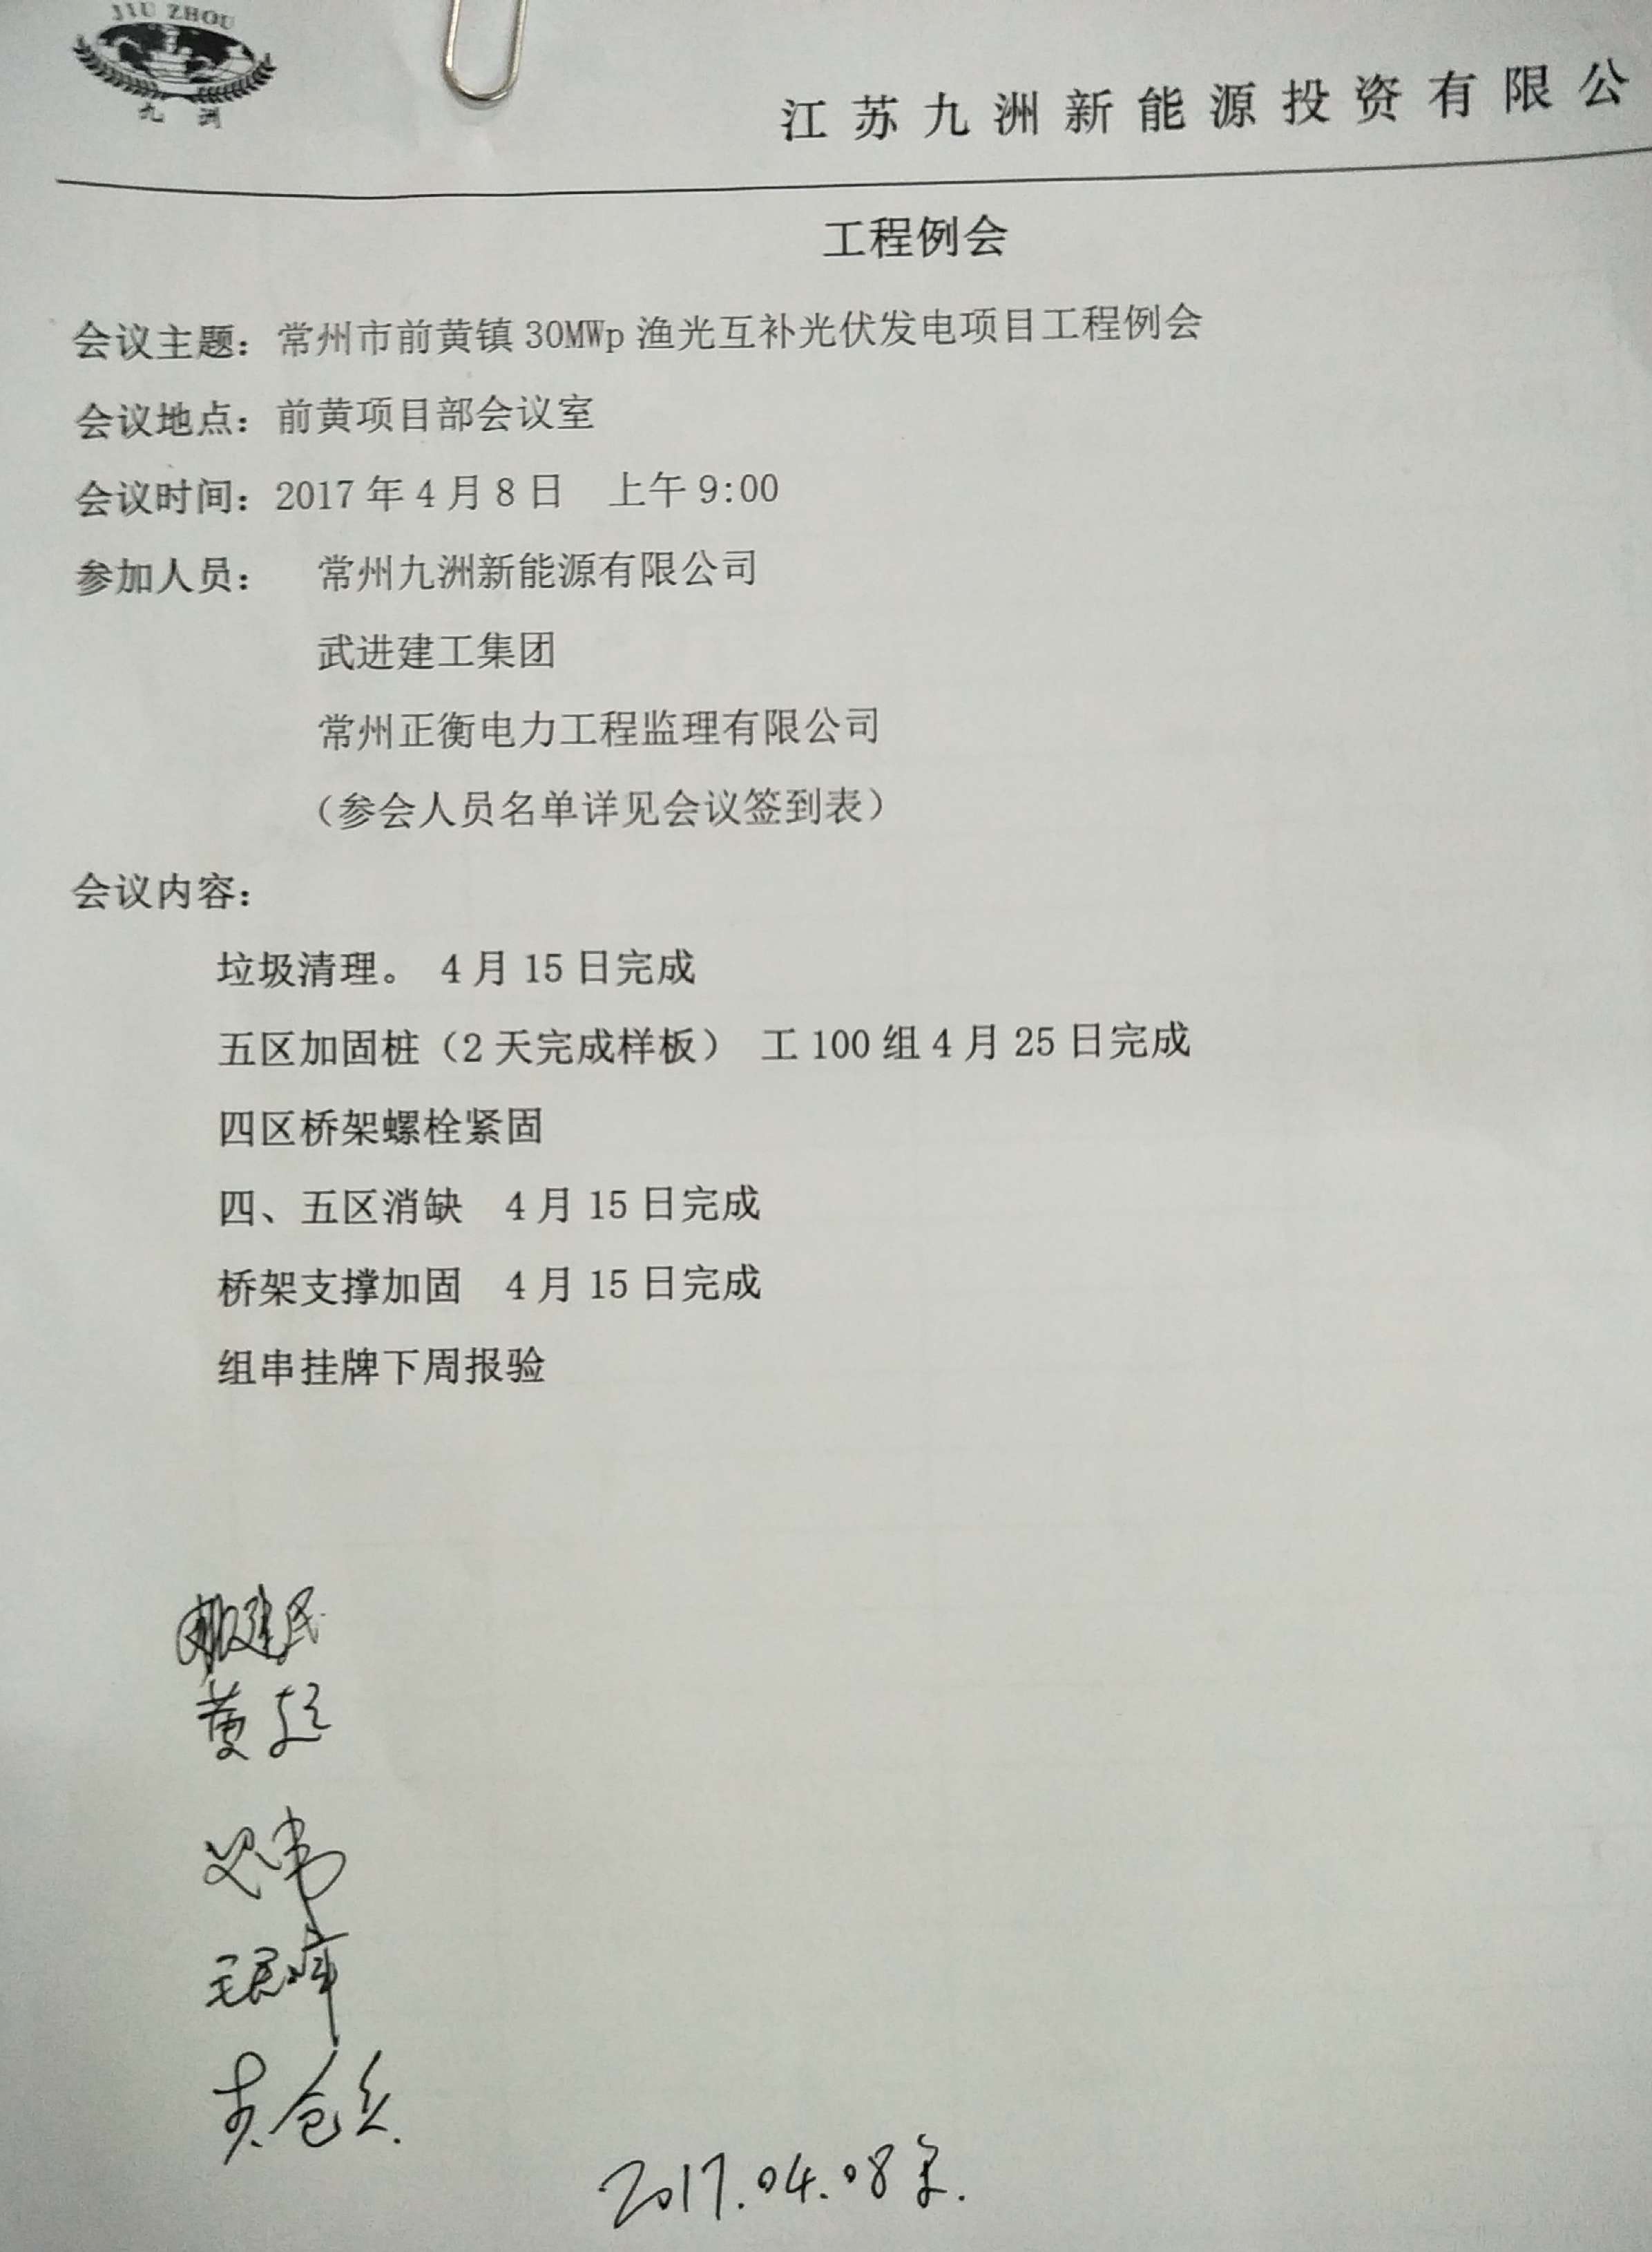 JIU ZHOU
九 洲
江苏九洲新能源投资有限公
工程例会
会议主题：常州市前黄镇 30MWp 渔光互补光伏发电项目工程例会
会议地点：前黄项目部会议室
会议时间：2017 年 4 月 8 日 上午 9:00
参加人员： 常州九洲新能源有限公司
武进建工集团
常州正衡电力工程监理有限公司
（参会人员名单详见会议签到表）
会议内容：
垃圾清理。 4 月 15 日完成
五区加固桩（2 天完成样板） 工 100 组 4 月 25 日完成
四区桥架螺栓紧固
四、五区消缺 4 月 15 日完成
桥架支撑加固 4 月 15 日完成
组串挂牌下周报验
建民
黄超
2017.04.08